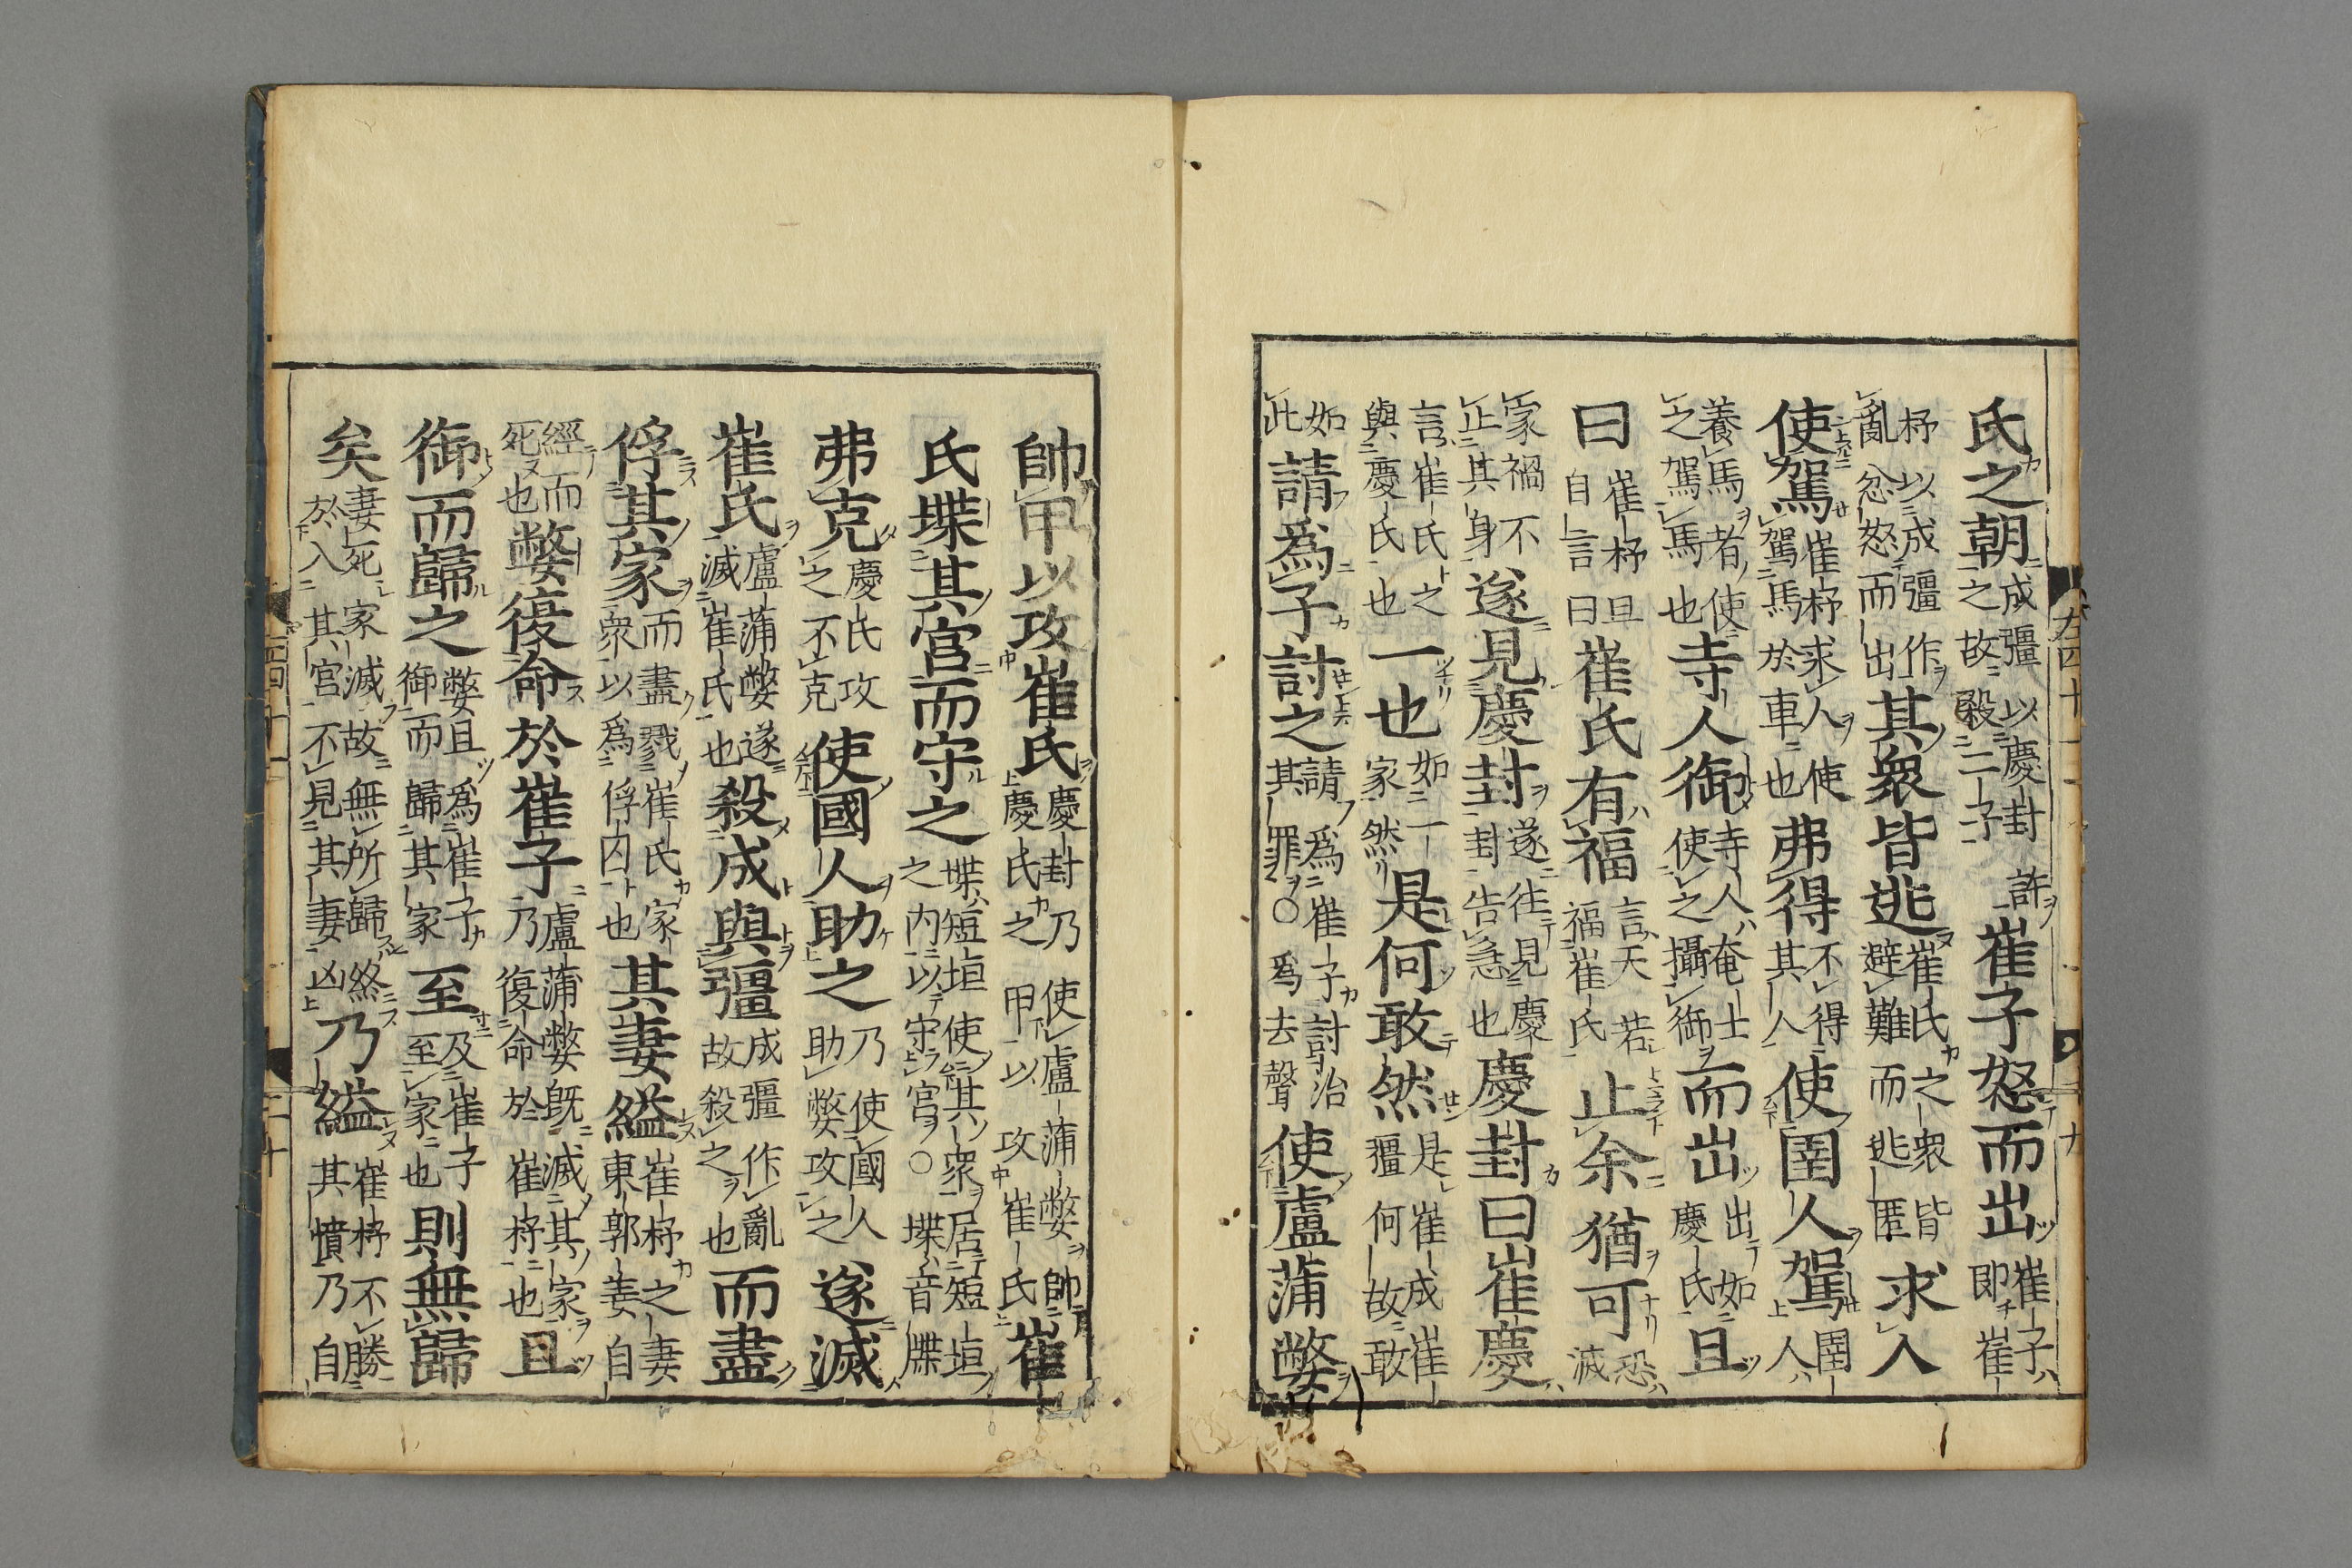 氏之朝成彊以慶封許之故殺二子崔子怒而出崔子ハ即崔
杼以成彊作亂忿怒而出其衆皆逃崔氏之衆皆避難而逃匿求人
使駕崔杼求人使駕馬於車也弗得不得其人使圉人駕圉人ハ
養馬者使之駕馬也寺人御寺人奄士使之攝御而出出如慶氏且
曰崔杼且自言曰崔氏有福言天若福崔氏止余猶可恐滅
家禍不止其身遂見慶封遂往見慶封告急也慶封曰崔慶
言崔氏之與慶氏也一也如一家然是何敢然是崔成崔彊何故敢
如此請爲子討之請爲崔子討治其罪○爲去聲使盧蒲嫳
帥甲以攻崔氏慶封乃使盧蒲嫳帥慶氏之甲以攻崔氏崔
氏堞其宮而守之堞短垣使其衆居短垣之内以守宮○堞音牒
弗克慶氏攻之不克使國人助之乃使國人助嫳攻之遂滅
崔氏盧蒲嫳遂滅崔氏也殺成與彊成彊作亂故殺之也而盡
俘其家而盡戮崔氏家衆以爲俘囚也其妻縊崔杼之妻東郭姜自
經而死也嫳復命於崔子盧蒲嫳既滅其家乃復命於崔杼也且
御而歸之嫳且爲崔子御而歸其家至及崔子至家也則無歸
矣妻死家滅故無所歸終於入其宮不見其妻凶乃縊崔杼不勝其憤乃自